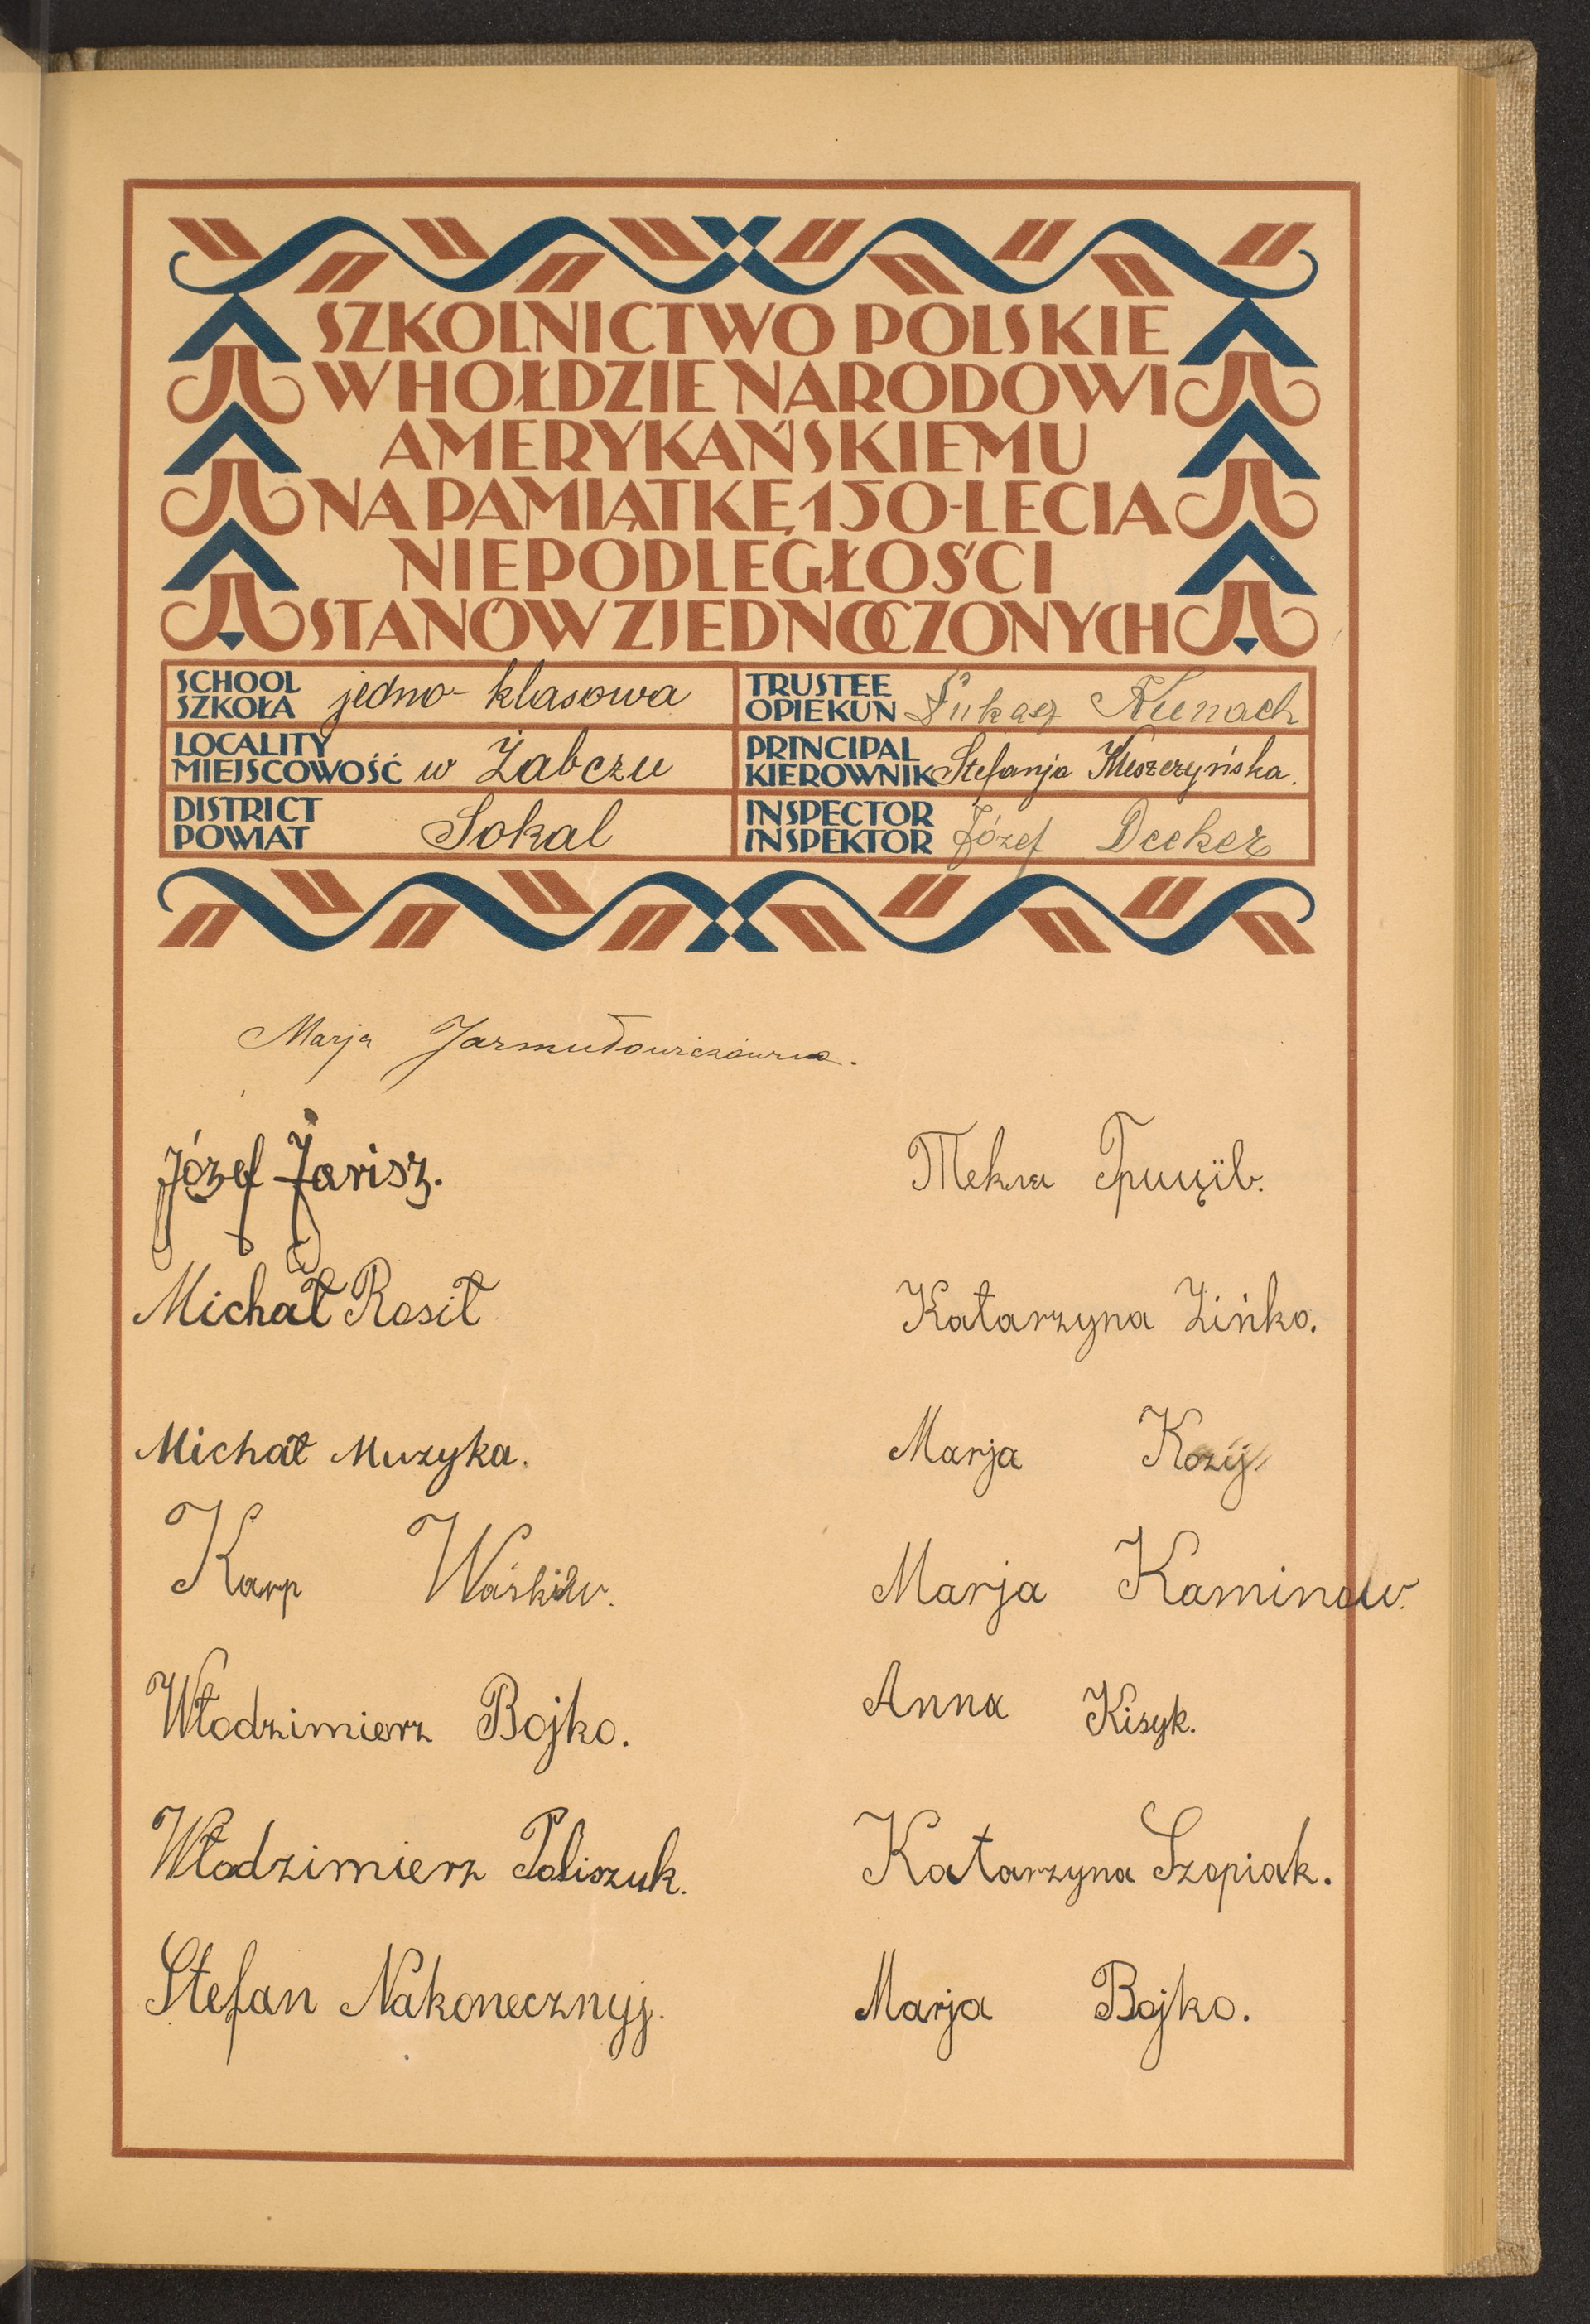 SZKOLNICTWO POLSKIE
W HOŁDZIE NARODOWI
AMERYKAŃSKIEMU
NA PAMIĄTKĘ 150-LECIA
NIEPODLEGŁOŚCI
STANÓW ZJEDNOCZONYCH
SCHOOL
SZKOŁA jedno-klasowa
LOCALITY
MIEJSCOWOŚĆ w Żabczu
DISTRICT
POWIAT Sokal
TRUSTEE
OPIEKUN Łukasz Kunach
PRINCIPAL
KIEROWNIK Stefanja Kluszczyńska.
INSPECTOR
INSPEKTOR Józef Decker
Marja Jarmułowiczówna.
Józef Jarisz.
Michał Rosił
Michał Muzyka.
Karp Waśkiw.
Włodzimierz Bojko.
Włodzimierz Poliszuk.
Stefan Nakonecznyj.
Текля Гриців.
Katarzyna Zińko.
Marja Kozij
Marja Kaminow.
Anna Kisyk.
Katarzyna Szopiak.
Marja Bojko.